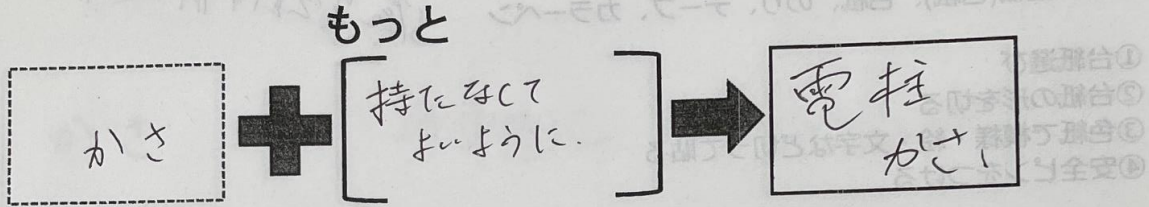 もっと
かさ
持たなくて
よいように.
電柱
かさ